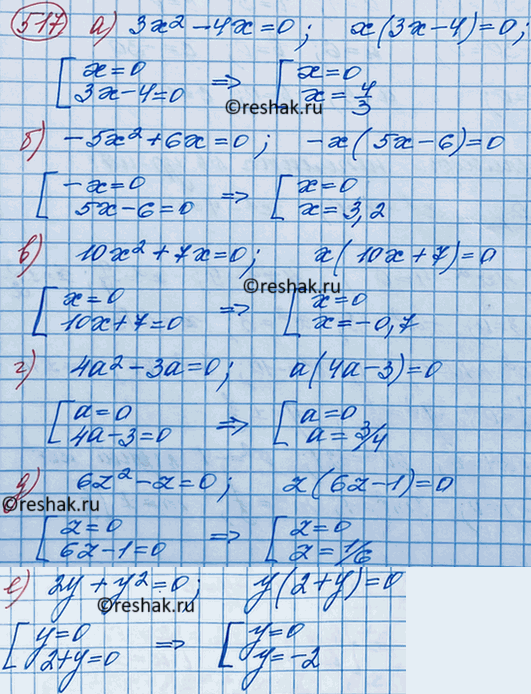 517 а) 3x² - 4x = 0; x(3x - 4) = 0;
[x = 0 ⇒ [x = 0
3x - 4 = 0 x = 4/3
©reshak.ru
б) -5x² + 6x = 0; -x(5x - 6) = 0
[-x = 0 ⇒ [x = 0
5x - 6 = 0 x = 3,2
в) 10x² + 7x = 0; x(10x + 7) = 0
©reshak.ru
[x = 0 ⇒ [x = 0
10x + 7 = 0 x = -0,7
г) 4a² - 3a = 0; a(4a - 3) = 0
[a = 0 ⇒ [a = 0
4a - 3 = 0 a = 3/4
д) 6z² - z = 0; z(6z - 1) = 0
©reshak.ru
[z = 0 ⇒ [z = 0
6z - 1 = 0 z = 1/6
е) 2y + y² = 0; y(2 + y) = 0
©reshak.ru
[y = 0 ⇒ [y = 0
2 + y = 0 y = -2